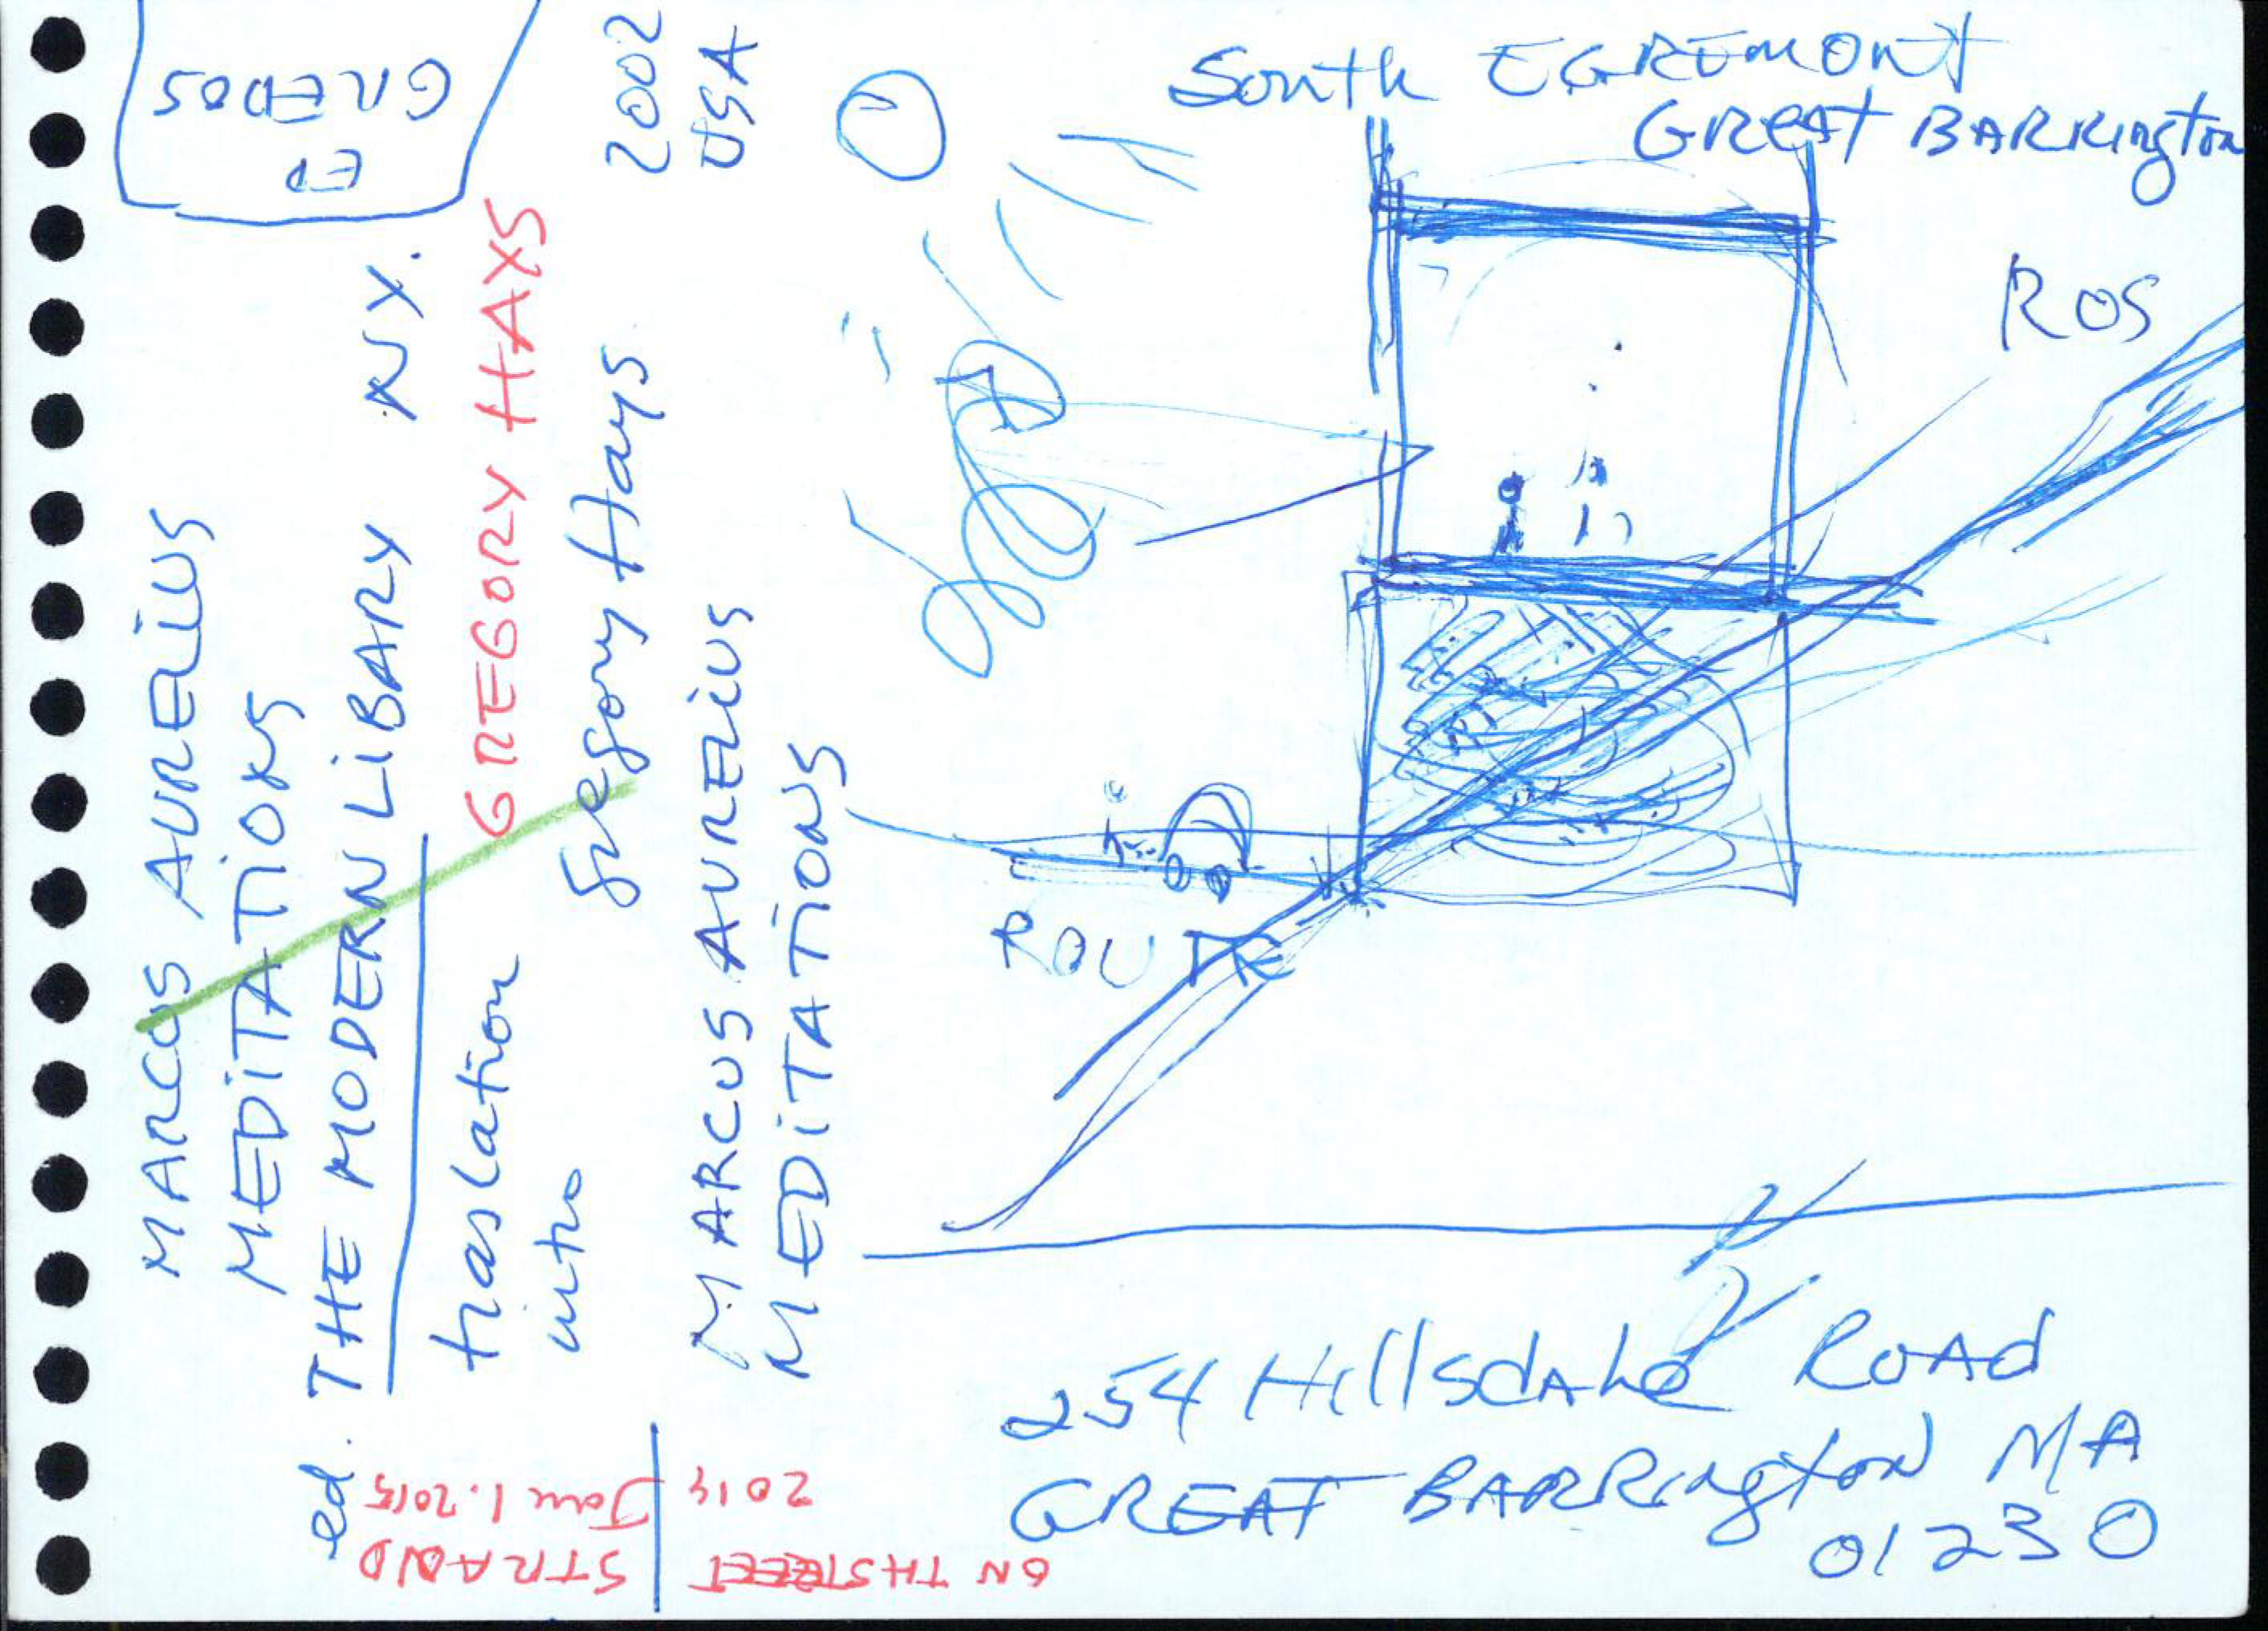 MARCUS AURELIUS
MEDITATIONS
ed. THE MODERN LIBARY NY.
traslation GREGORY HAYS
intro Gregory Hays
2002
USA
MARCUS AURELIUS
MEDITATIONS
ED
South EGREMONT
GREAT BARRington
ROS
ROUTE
254 Hillsdale Road
GREAT BARRington MA
01230
STRAND
Jan 1. 2015
2014